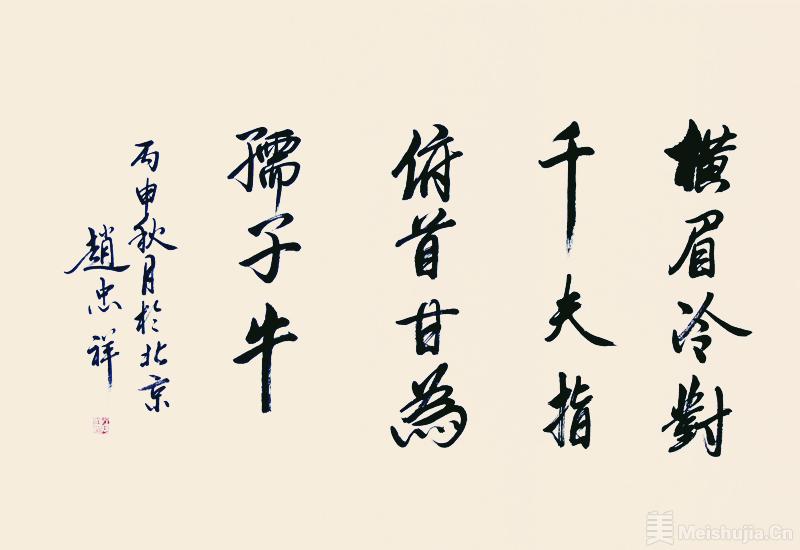 橫眉冷對
千夫指
俯首甘為
孺子牛
丙申秋月於北京
趙忠祥
美 Meishujia.Cn